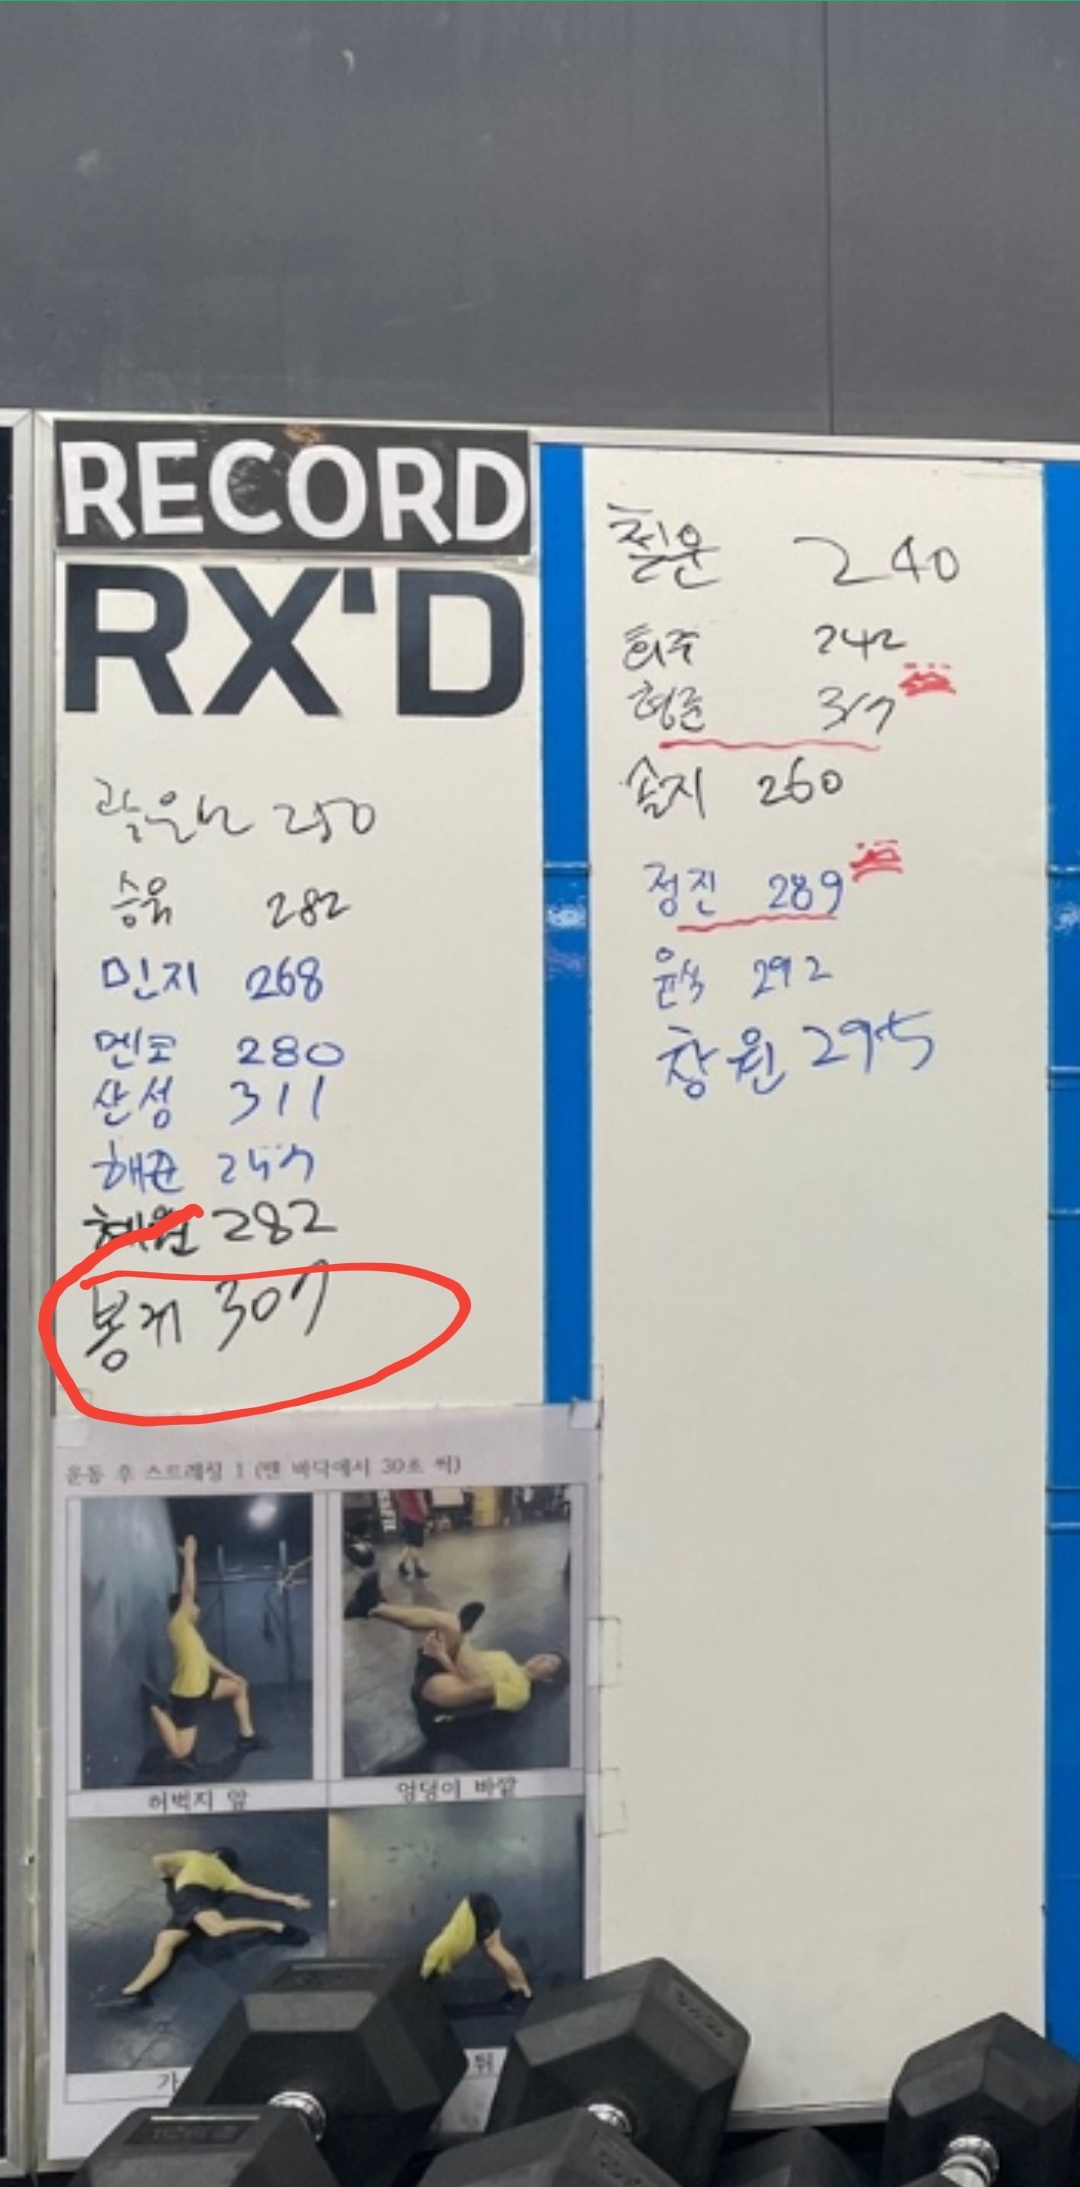 RECORD
RX'D
250
승유 282
민지 268
멘코 280
산성 311
해준 247
혜원 282
봉게 307
운동 후 스트레칭 1 (맨 바닥에서 30초 씩)
허벅지 앞
엉덩이 바깥
가
뒤
철운 240
희주 242
형준 317
솔지 260
정진 289
윤식 292
창원 295